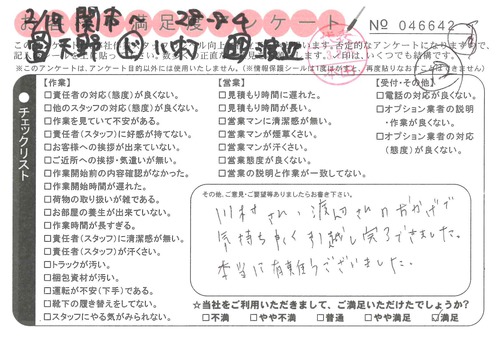 お客様満足度アンケート
No 046642
2/19 関市～ 28-8-4
渡辺
※このアンケートは、アンケート目的以外には使用いたしません。(※情報保護シールは1度はがすと、再度貼りなおすことはできません)
チェックリスト
【作業】
□責任者の対応(態度)が良くない。
□他のスタッフの対応(態度)が良くない。
□作業を見ていて不安がある。
□責任者(スタッフ)に好感が持てない。
□お客様への挨拶が出来ていない。
□ご近所への挨拶・気遣いが無い。
□作業開始前の内容確認がなかった。
□作業開始時間が遅れた。
□荷物の取り扱いが雑である。
□お部屋の養生が出来ていない。
□作業時間が長すぎる。
□責任者(スタッフ)に清潔感が無い。
□責任者(スタッフ)が汗くさい。
□トラックが汚い。
□梱包資材が汚い。
□運転が不安(下手)である。
□靴下の履き替えをしてない。
□スタッフにやる気がみられない。
【営業】
□見積もり時間に遅れた。
□見積もり時間が長い。
□営業マンに清潔感が無い。
□営業マンが煙草くさい。
□営業マンが汗くさい。
□営業態度が良くない。
□営業の説明と作業が一致してない。
【受付・その他】
□電話の対応が良くない。
□オプション業者の説明・作業が良くない。
□オプション業者の対応(態度)が良くない。
その他、ご意見・ご要望等ありましたらお書き下さい。
川村さん、渡辺さんのおかげで
気持ち良く引越し完了できました。
本当に有難うございました。
☆当社をご利用いただきまして、ご満足いただけたでしょうか?
□不満 □やや不満 □普通 □やや満足 ☑満足